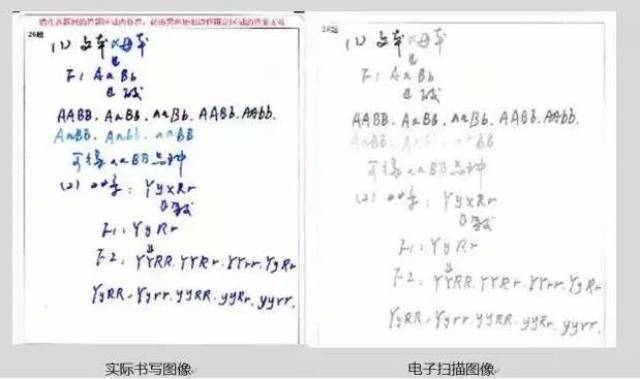 26题
(1) 父本 × 母本
F1 AaBb
AABB. AaBB. aaBb. AABb. AAbb.
AaBB. Aabb. aaBB
可得 aaBB 品种
(2) YyxRr
F1: YyRr
F2: YYRR. YYRr. YYrr. YyRr
YyRR. Yyrr. yyRR. yyRr. yyrr.
实际书写图像
(1) 父本 × 母本
F1 AaBb
AABB. AaBB. aaBb. AABb. AAbb.
AaBB. Aabb. aaBB
可得 aaBB 品种
(2) YyxRr
F1: YyRr
F2: YYRR. YYRr. YYrr. YyRr
YyRR. Yyrr. yyRR. yyRr. yyrr.
电子扫描图像